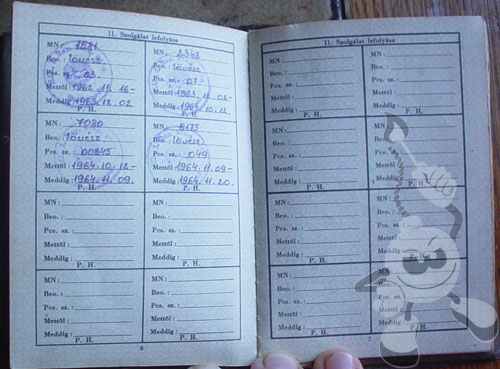 11. Szolgálat lefolyása
MN: 1521
Beo.: lövész
Pcs. sz.: 03
Mettől: 1962. 12. 16-
Meddig: 1963. 12. 02
P. H.
MN: 2348
Beo.: lövész
Pcs. sz.: 07
Mettől: 1963. 12. 02-
Meddig: 1964. 10. 12
P. H.
MN: 7080
Beo.: lövész
Pcs. sz.: 00645
Mettől: 1964. 10. 12-
Meddig: 1964. 11. 09.
P. H.
MN: 8175
Beo.: lövész
Pcs. sz.: 049
Mettől: 1964. 11. 09-
Meddig: 1964. 11. 20.
P. H.
MN:
Beo.:
Pcs. sz.:
Mettől:
Meddig:
P. H.
MN:
Beo.:
Pcs. sz.:
Mettől:
Meddig:
P. H.
MN:
Beo.:
Pcs. sz.:
Mettől:
Meddig:
P. H.
MN:
Beo.:
Pcs. sz.:
Mettől:
Meddig:
P. H.
6
11. Szolgálat lefolyása
MN:
Beo.:
Pcs. sz.:
Mettől:
Meddig:
P. H.
MN:
Beo.:
Pcs. sz.:
Mettől:
Meddig:
P. H.
MN:
Beo.:
Pcs. sz.:
Mettől:
Meddig:
P. H.
MN:
Beo.:
Pcs. sz.:
Mettől:
Meddig:
P. H.
MN:
Beo.:
Pcs. sz.:
Mettől:
Meddig:
P. H.
MN:
Beo.:
Pcs. sz.:
Mettől:
Meddig:
P. H.
MN:
Beo.:
Pcs. sz.:
Mettől:
Meddig:
P. H.
MN:
Beo.:
Pcs. sz.:
Mettől:
Meddig:
P. H.
7